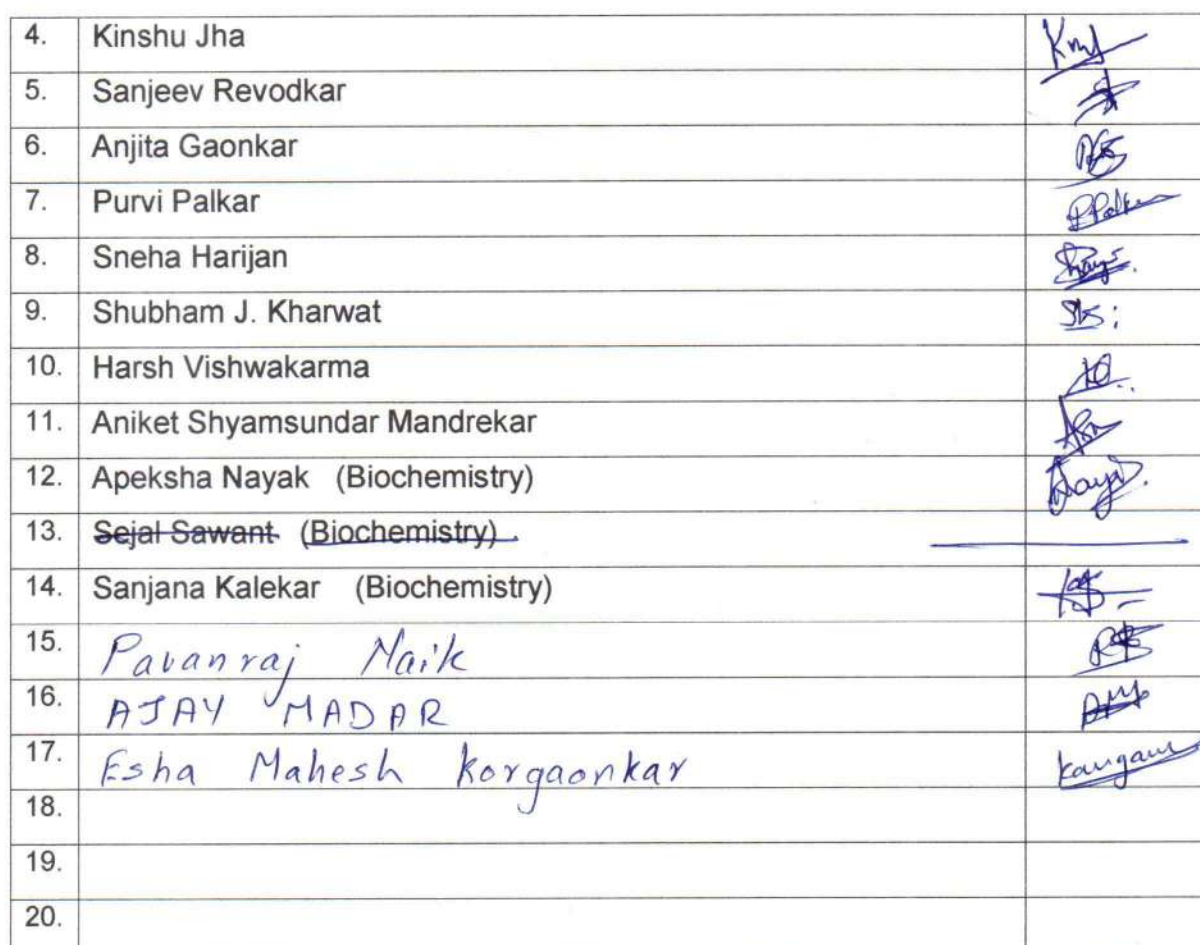 4. Kinshu Jha
5. Sanjeev Revodkar
6. Anjita Gaonkar
7. Purvi Palkar P Palkar
8. Sneha Harijan
9. Shubham J. Kharwat SK
10. Harsh Vishwakarma
11. Aniket Shyamsundar Mandrekar
12. Apeksha Nayak (Biochemistry)
13. Sejal Sawant (Biochemistry)
14. Sanjana Kalekar (Biochemistry)
15. Pavanraj Naik
16. AJAY MADAR
17. Esha Mahesh Korgaonkar
18.
19.
20.